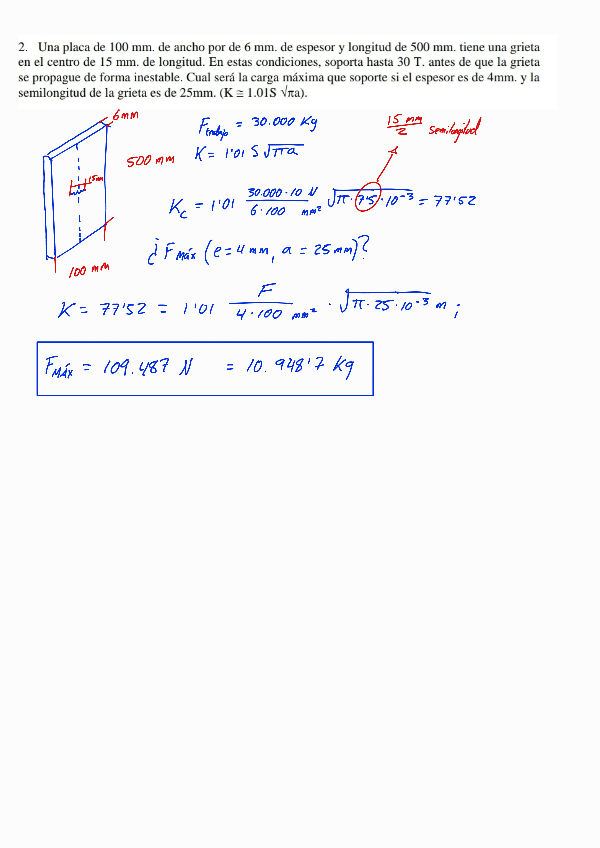 2. Una placa de 100 mm. de ancho por de 6 mm. de espesor y longitud de 500 mm. tiene una grieta
en el centro de 15 mm. de longitud. En estas condiciones, soporta hasta 30 T. antes de que la grieta
se propague de forma inestable. Cual será la carga máxima que soporte si el espesor es de 4mm. y la
semilongitud de la grieta es de 25mm. (K ≅ 1.01S √πa).
6mm
F trabajo = 30.000 Kg
15 mm / 2 semilongitud
500 mm
K = 1'01 S √πa
15mm
Kc = 1'01 30.000·10 N / 6·100 mm² √π·7'5·10⁻³ = 77'52
¿F máx (e = 4 mm, a = 25 mm)?
100 mm
K = 77'52 = 1'01 F / 4·100 mm² · √π·25·10⁻³ m ;
F MÁX = 109.487 N = 10.948'7 Kg